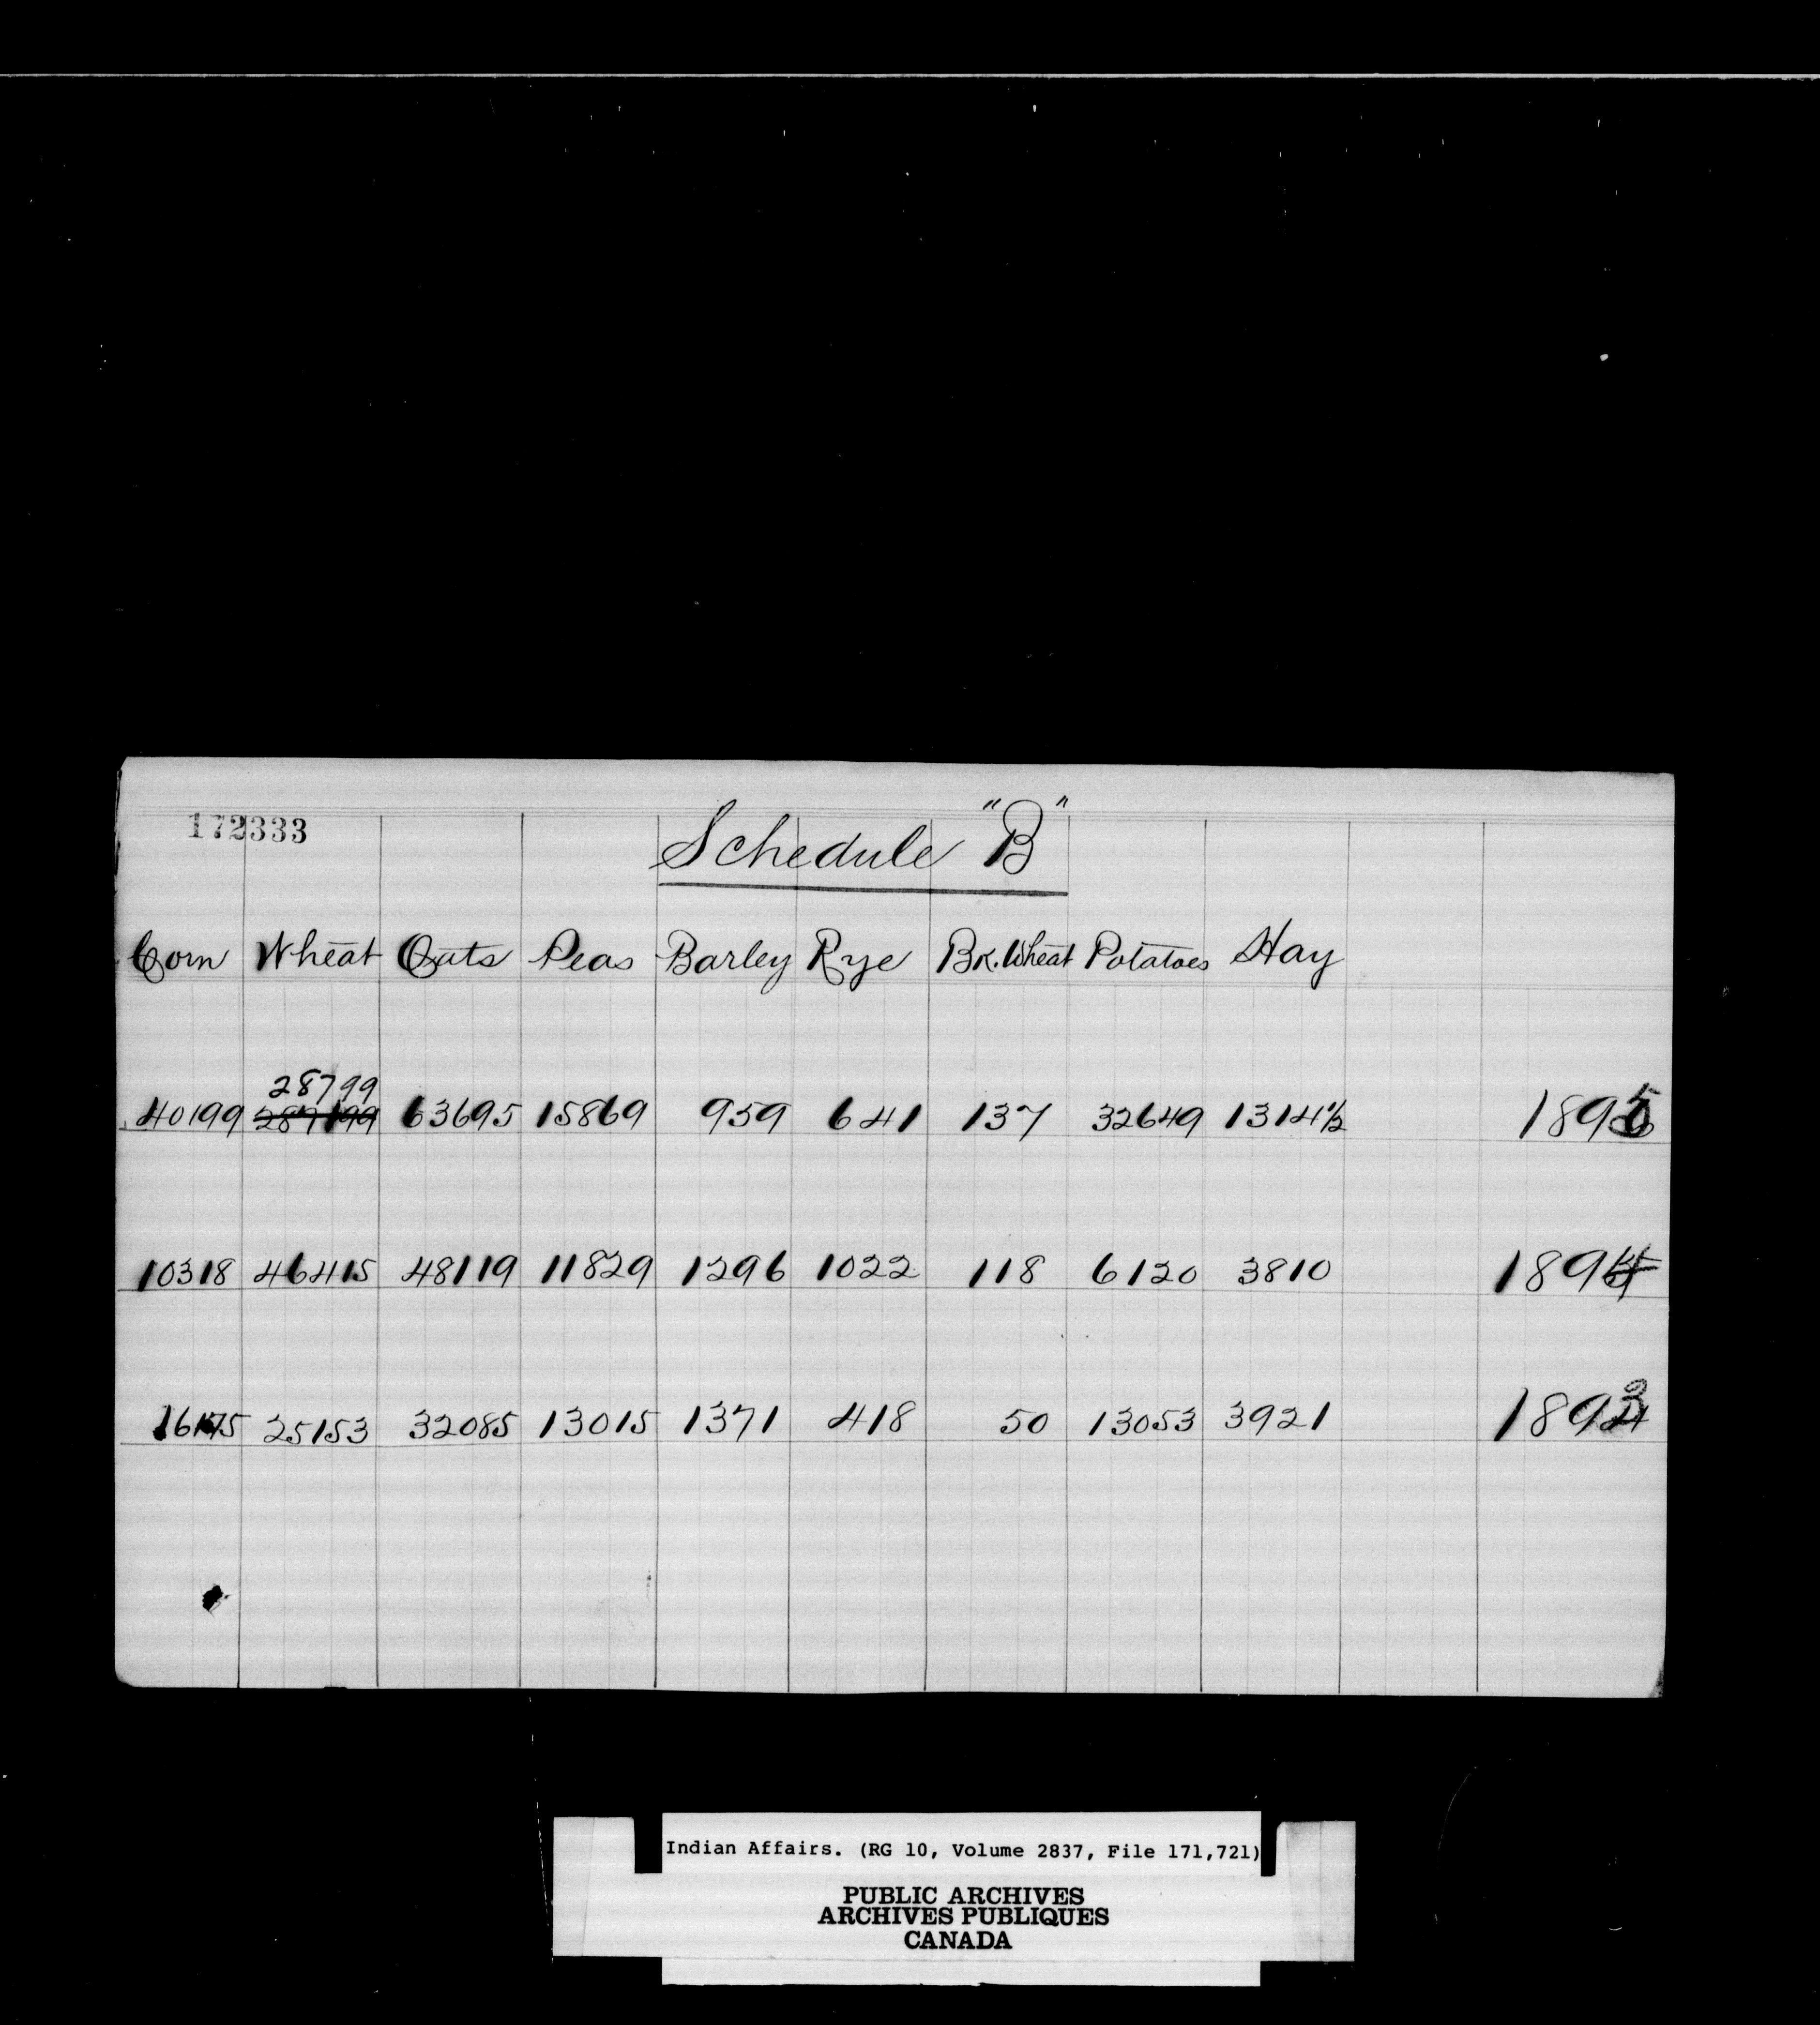 172333
Schedule "B"
Corn Wheat Oats Peas Barley Rye Bk. Wheat Potatoes Hay
28799
40199 287199 63695 15869 959 641 137 32649 1314½ 1895
10318 46415 48119 11829 1296 1022 118 6120 3810 1894
25153 32085 13015 1371 418 50 13053 3921 1893
Indian Affairs. (RG 10, Volume 2837, File 171,721)
PUBLIC ARCHIVES
ARCHIVES PUBLIQUES
CANADA